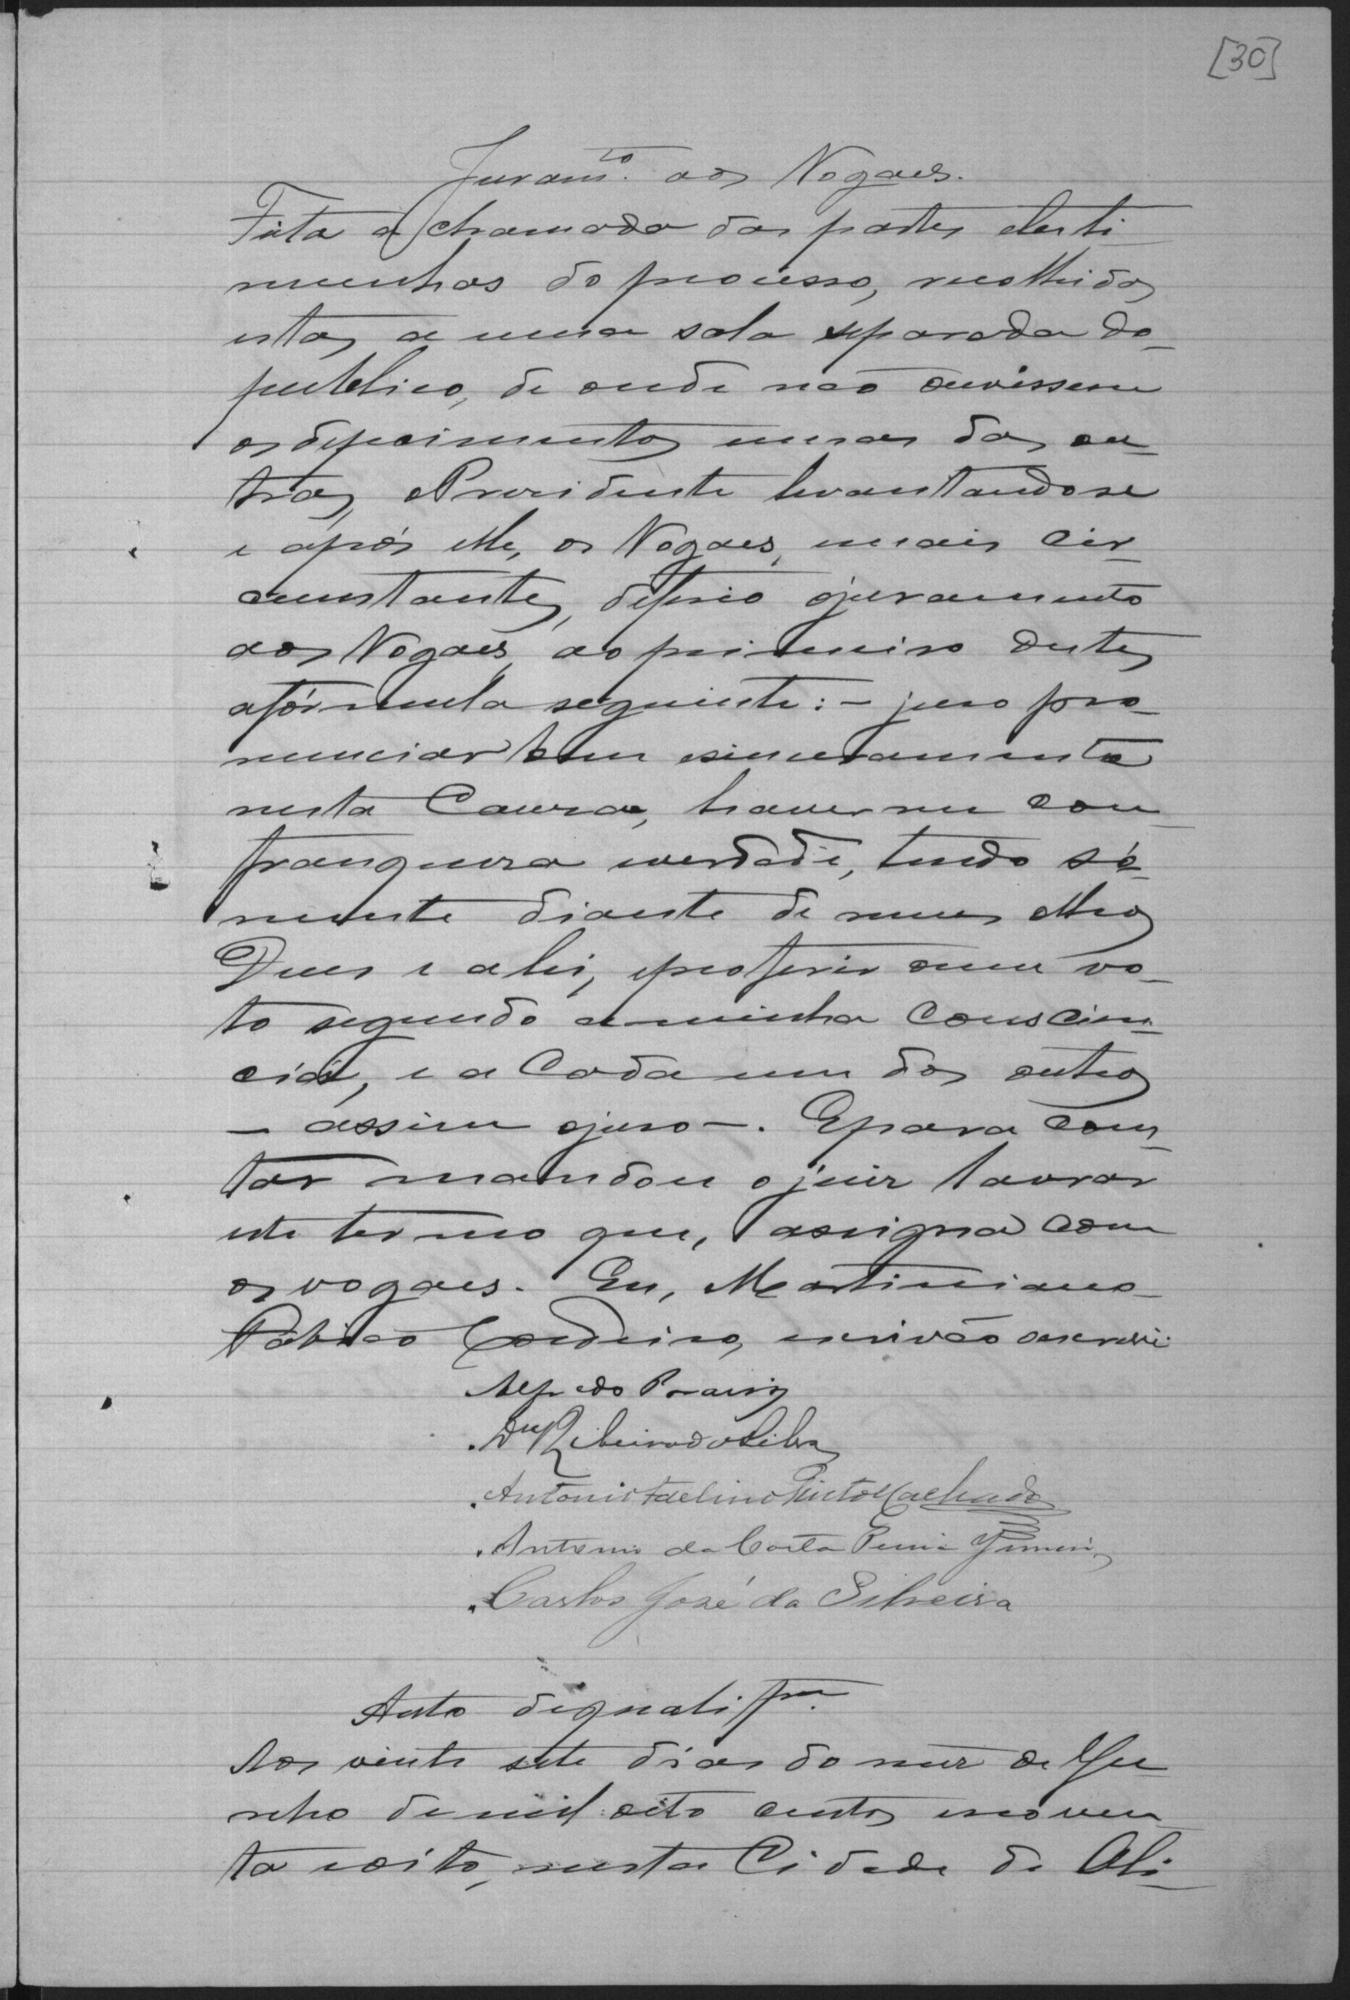 [30]
Juram.to aos Vogaes.
Feita a chamada das partes e testi
munhas do processo, recolhidas
estas a uma sala separada do
publico, de onde não ouvissem
os depoimentos umas das ou-
tras, o Presidente levantando se
e após elle, os Vogaes, e mais cir-
cunstantes, deferio o juramento
aos Vogaes, ao primeiro destes
a fórmula seguinte: – juro pro-
nunciar bem e sinceramente
nesta Causa, haver me com
franqueza e verdade, tendo só-
mente diante de meus olhos
Deus e a lei, e proferir o meu vo-
to segundo a minha conscien-
cia, e a cada um dos outros
– assim o juro –. E para cons-
tar mandou o juiz lavrar
este termo que, assigna com
os vogaes. Eu, Martiniano
Cordeiro, escrivão o escrevi.
Alfredo
Ribeiro da Silva
Antonio Pinto Machado
Antonio da Costa
Carlos José da Silveira
Auto de qualif.
Aos vinte sete dias do mez de Ju
nho de mil oito centos e noven
ta e oito, nesta Cidade de